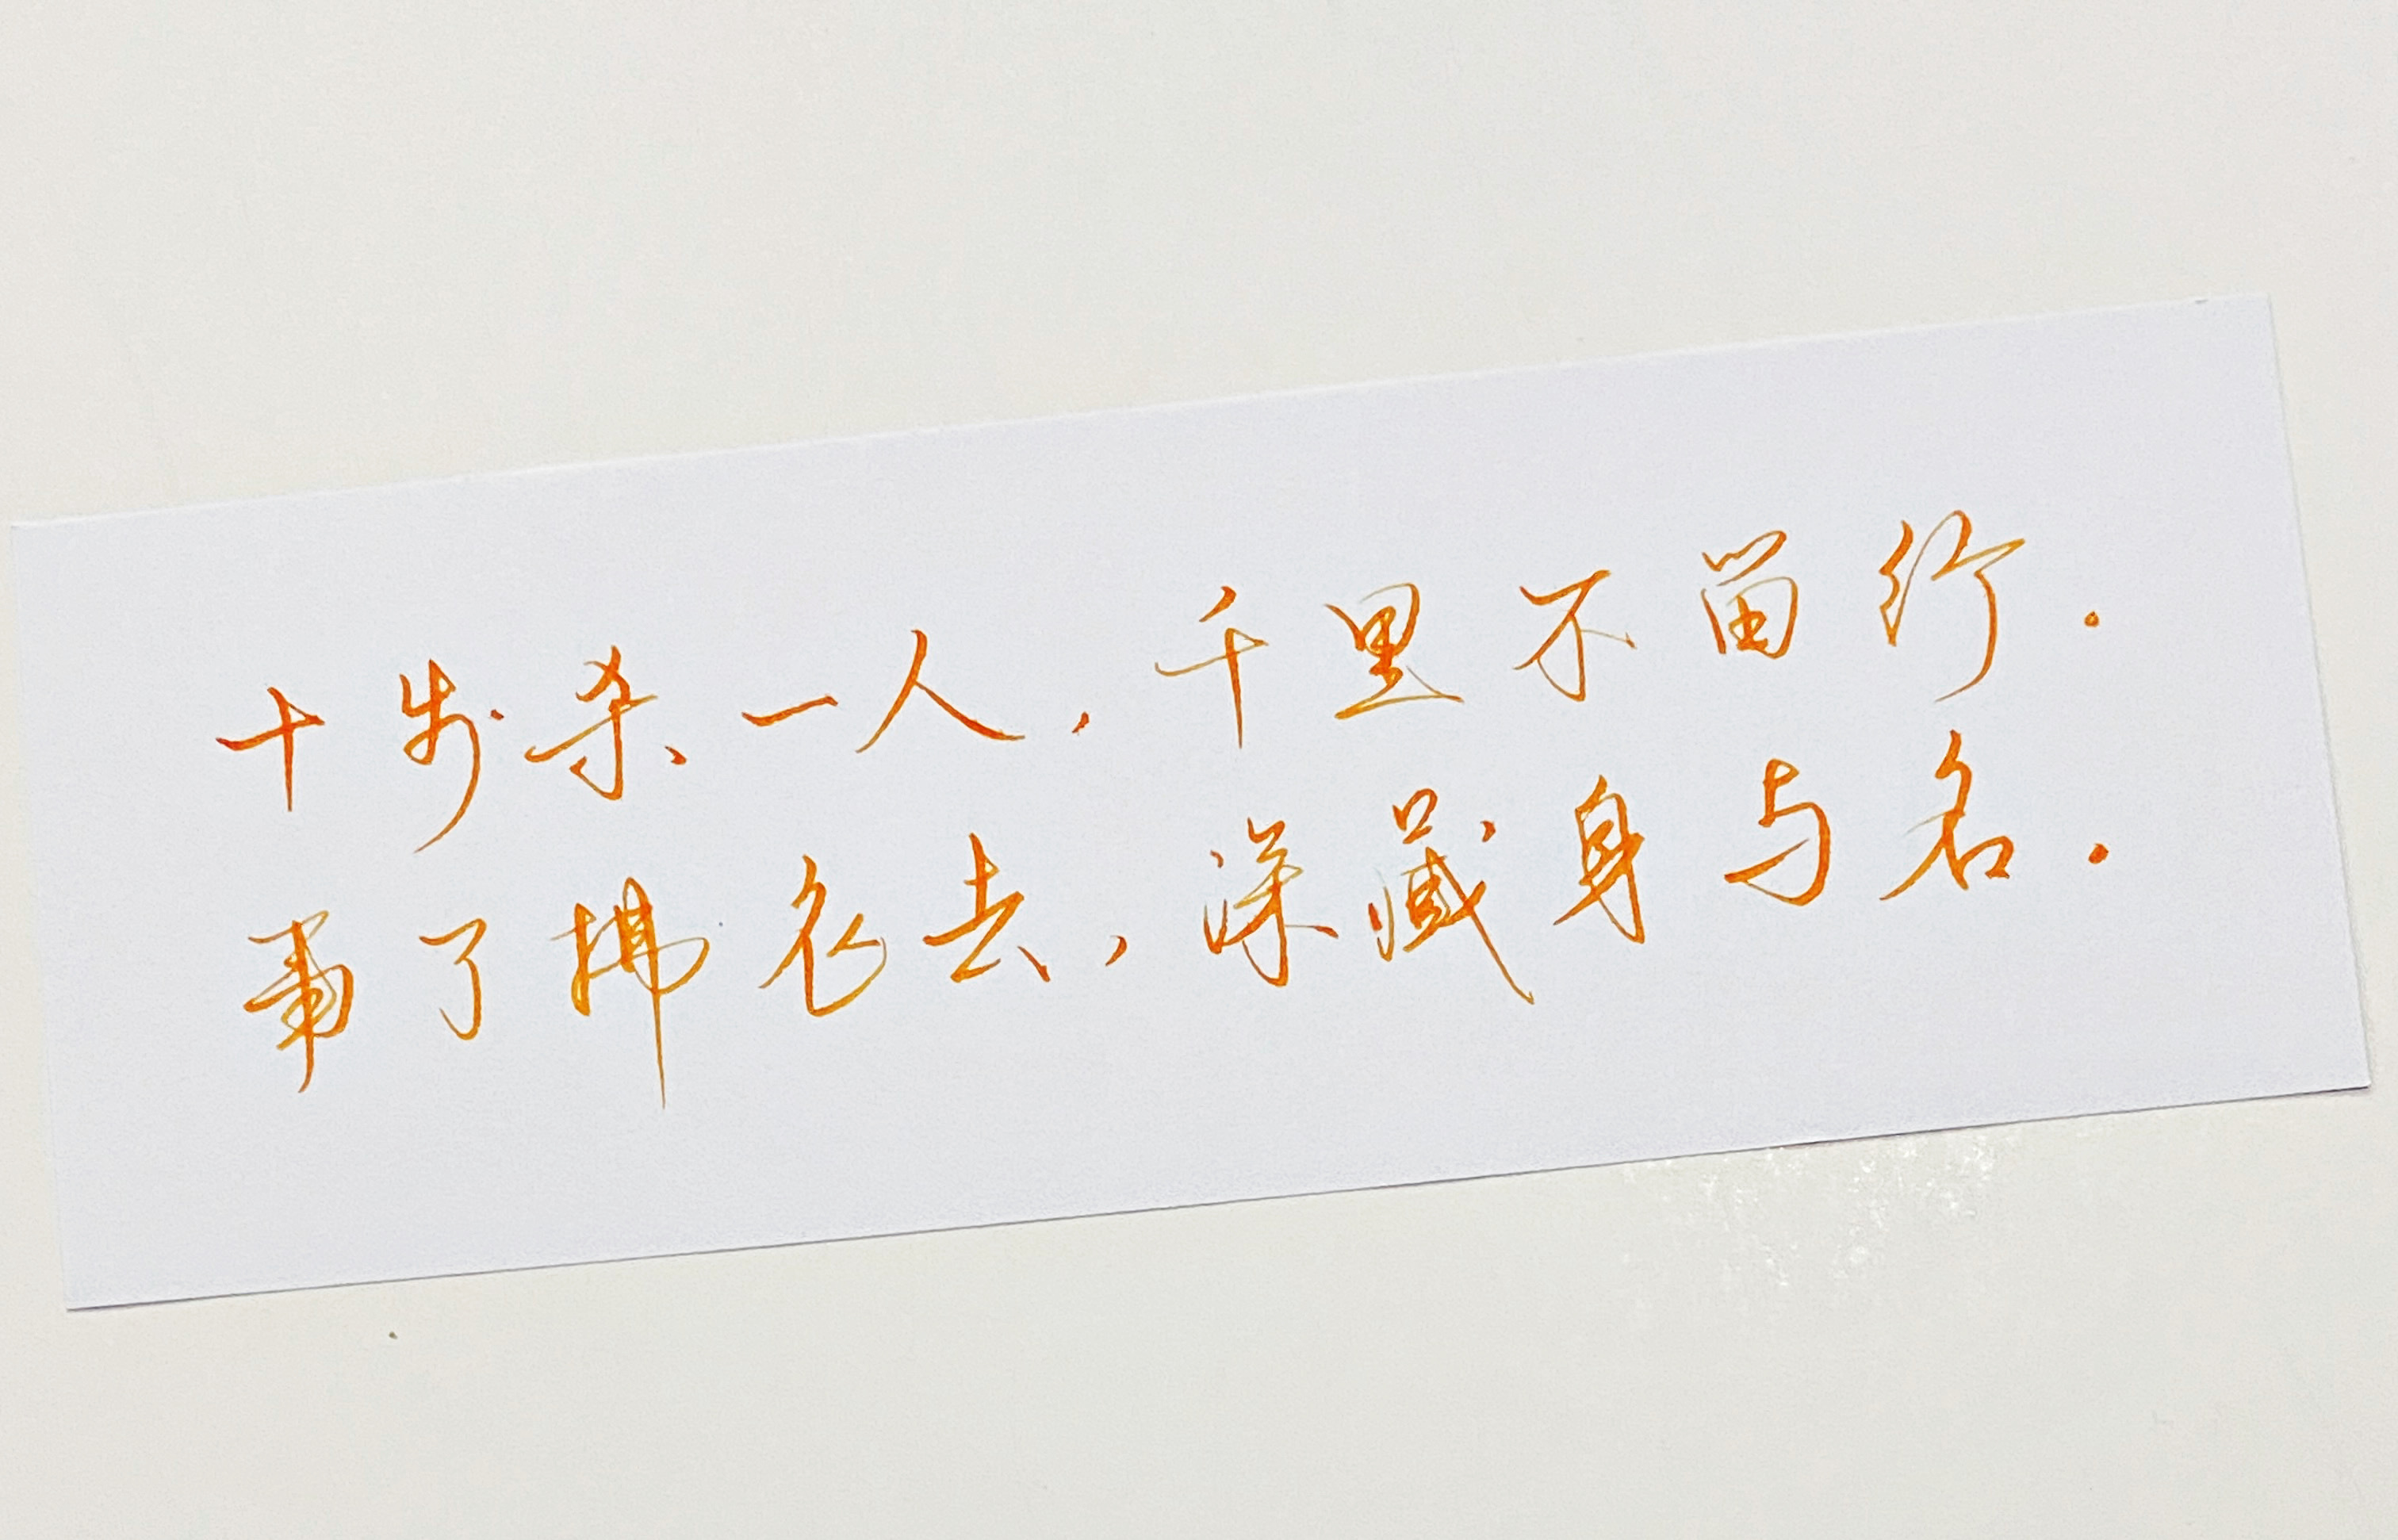 十步杀一人，千里不留行.
事了拂衣去，深藏身与名.